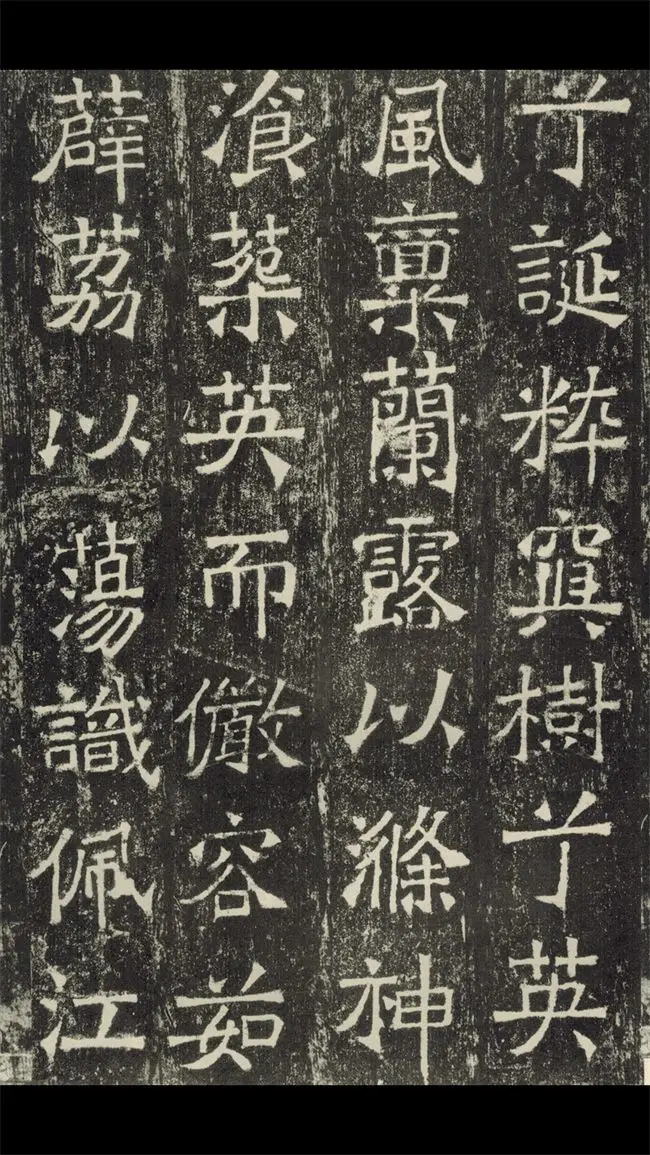 亍誕粹寘樹亍英
風稟蘭露以滌神
湌英而儼容茹
薜荔以蕩識佩江